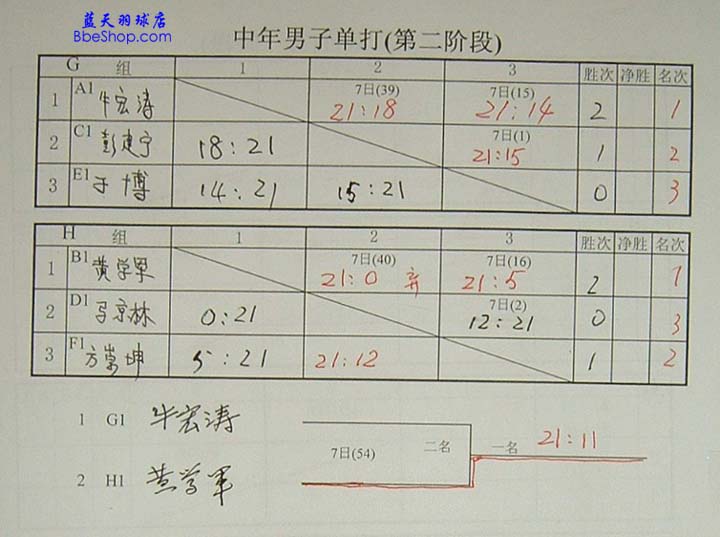 蓝天羽球店
BbeShop.com
中年男子单打(第二阶段)
G 组 1 2 3 胜次 净胜 名次
1 A1 牛宏涛 7日(39) 21:18 7日(15) 21:14 2 1
2 C1 彭建宁 18:21 7日(1) 21:15 1 2
3 E1 于博 14:21 15:21 0 3
H 组 1 2 3 胜次 净胜 名次
1 B1 黄学军 7日(40) 21:0 弃 7日(16) 21:5 2 1
2 D1 马京林 0:21 7日(2) 12:21 0 3
3 F1 方崇坤 5:21 21:12 1 2
1 G1 牛宏涛
7日(54) 二名 一名 21:11
2 H1 黄学军